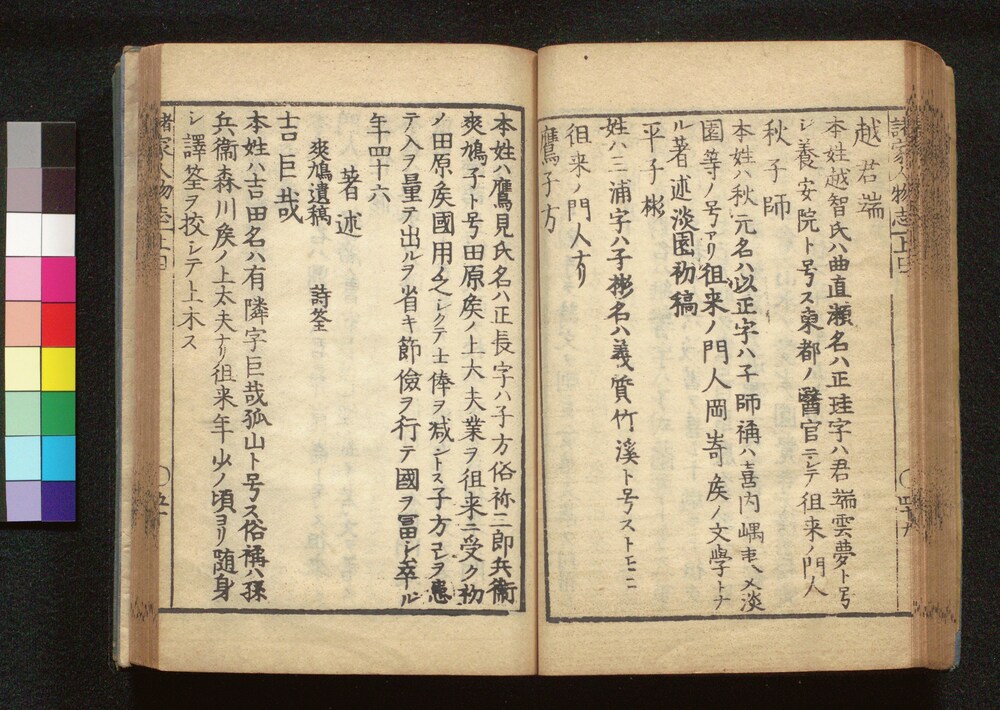 諸家人物志 上口 四十九
越君端
本姓越智氏ハ曲直瀬名ハ正珪字ハ君端雲夢ト号
シ養安院ト号ス東都ノ醫官ニシテ徂来ノ門人
秋子師
本姓ハ秋元名ハ以正字ハ子師稱ハ喜内嵎夷又淡
園等ノ号アリ徂来ノ門人岡嵜矦ノ文學トナ
ル著述淡園初稿
平子彬
姓ハ三浦字ハ子彬名ハ義質竹溪ト号ストモニ
徂来ノ門人ナリ
鷹子方
本姓ハ鷹見氏名ハ正長字ハ子方俗称三郎兵衞
爽鳩子ト号田原矦ノ上大夫業ヲ徂来ニ受ク初
ノ田原矦國用乏シクテ士俸ヲ减ントス子方コレヲ患
テ入ヲ量テ出ルヲ省キ節儉ヲ行テ國ヲ冨シ卒ル
年四十六
著述
爽鳩遺稿 詩筌
吉臣哉
本姓ハ吉田名ハ有隣字臣哉狐山ト号ス俗稱ハ孫
兵衞森川矦ノ上太夫ナリ徂来年少ノ頃ヨリ随身
シ譯筌ヲ校シテ上木ス
諸家人物志 上口 五十